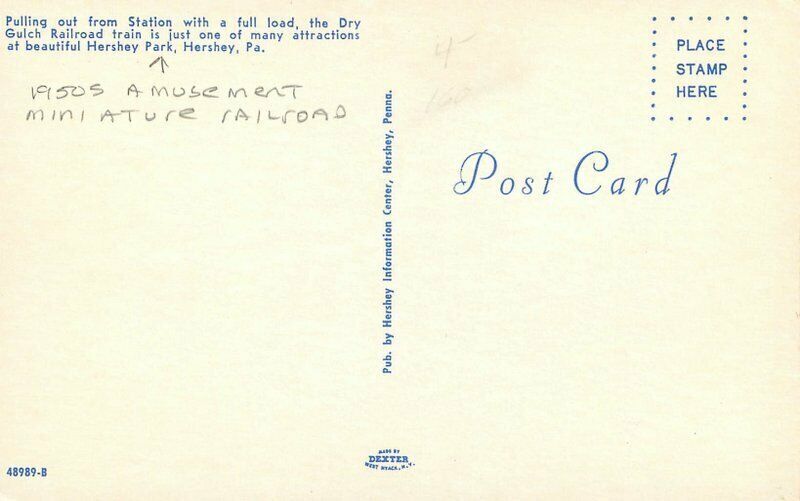 Pulling out from Station with a full load, the Dry
Gulch Railroad train is just one of many attractions
at beautiful Hershey Park, Hershey, Pa.
1950s AmusemenT
miniATure rAILroAD
4
PLACE
STAMP
HERE
Post Card
Pub. by Hershey Information Center, Hershey, Penna.
MADE BY
DEXTER
WEST NYACK, N.Y.
48989-B